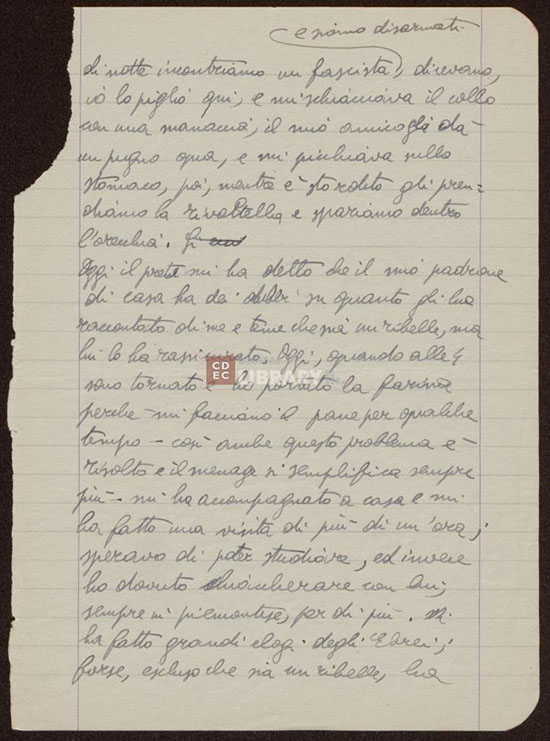 e siamo disarmati.
di notte incontriamo un fascista, dicevano,
io lo piglio qui, e mi schiacciava il collo
con una manaccia, il mio amico gli dà
un pugno qua, e mi picchiava nello
stomaco, poi, mentre è stordito gli pren-
diamo la rivoltella e spariamo dentro
l'orecchia.
Oggi il prete mi ha detto che il mio padrone
di casa ha dei dubbi su quanto gli ha
raccontato di me e teme che sia un ribelle, ma
lui lo ha rassicurato. Oggi, quando alle 4
sono tornato e ho portato la farina
perché mi facciano il pane per qualche
tempo - così anche questo problema è
risolto e il menage si semplifica sempre
più - mi ha accompagnato a casa e mi
ha fatto una visita di più di un'ora;
speravo di poter studiare, ed invece
ho dovuto chiacchierare con lui,
sempre in piemontese, per di più. Mi
ha fatto grandi elogi degli Ebrei;
forse, escluso che sia un ribelle, ha
CDEC LIBRARY